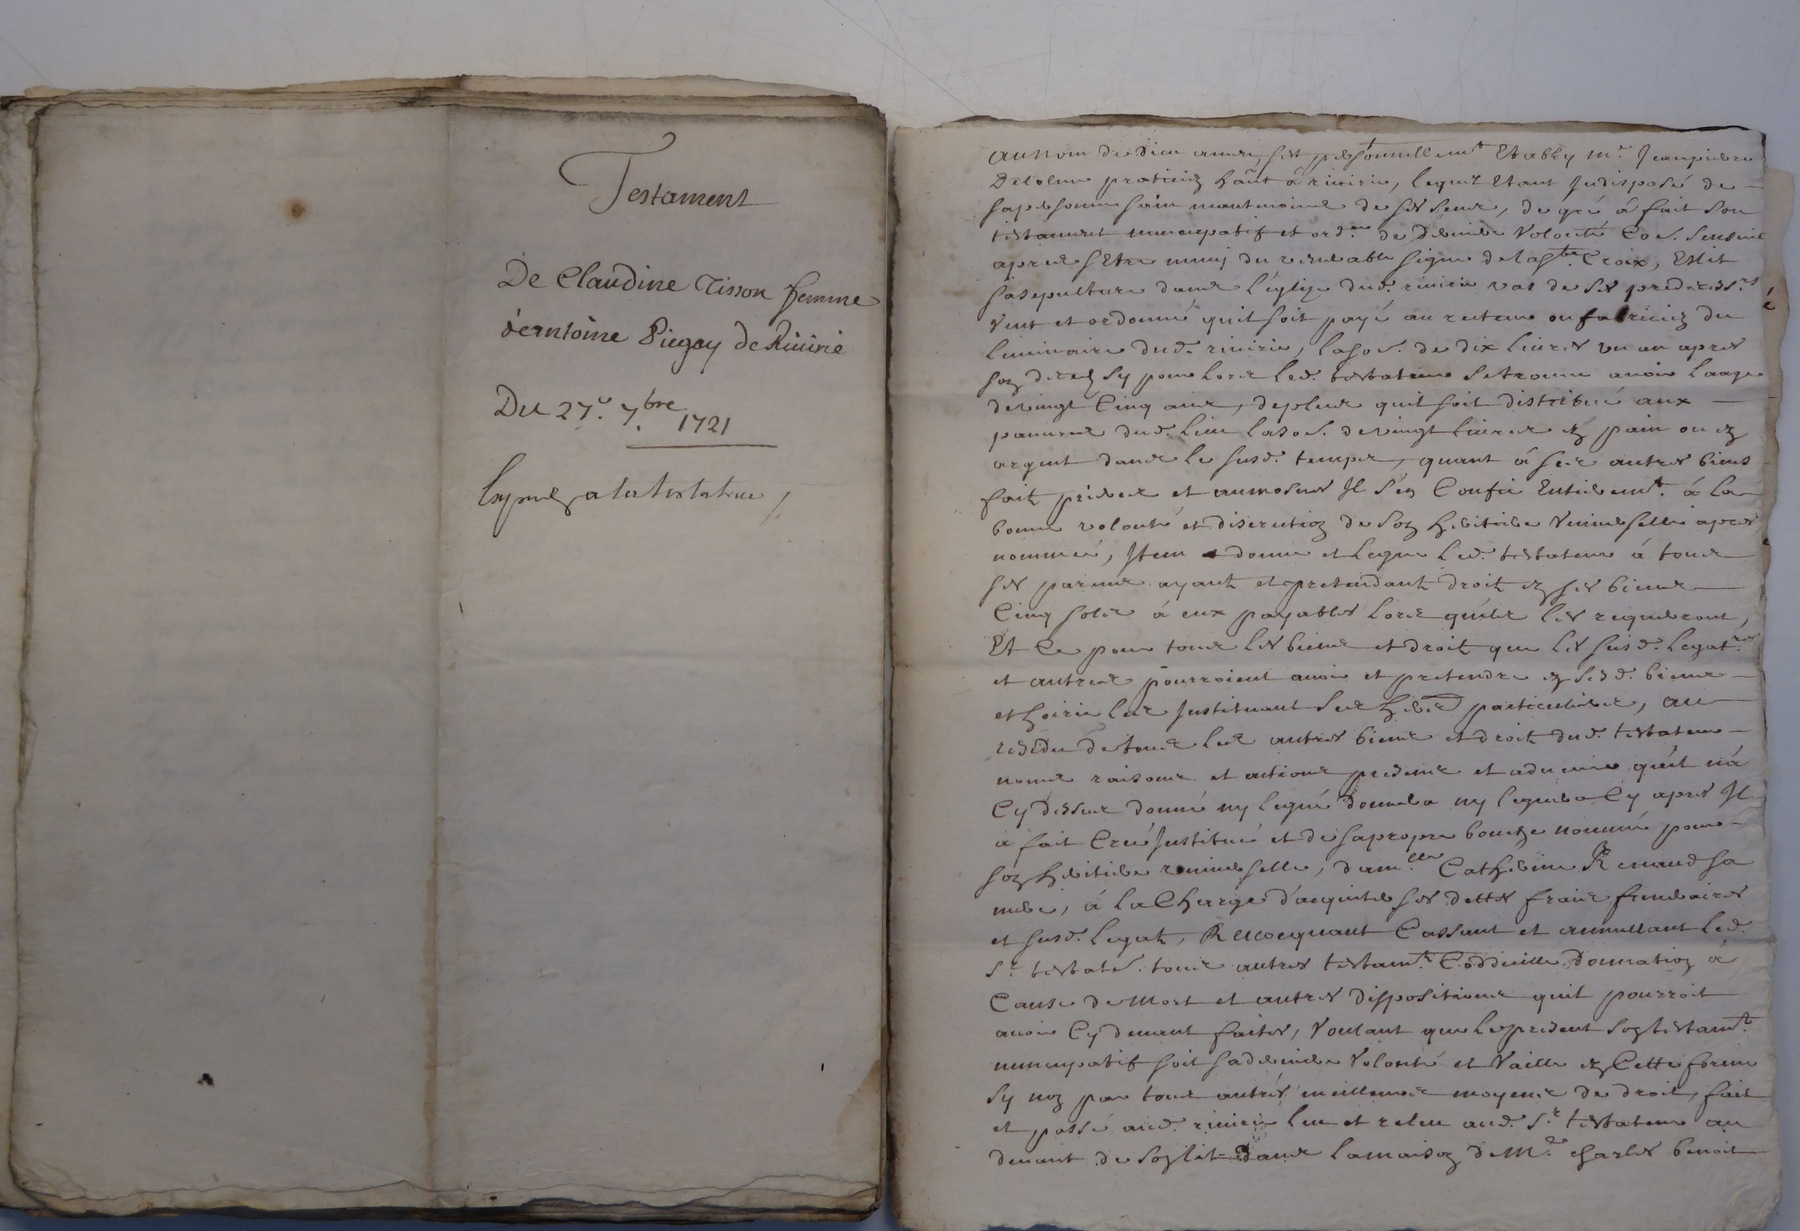 Testament
De Claudine Tisson femme
d'antoine Piegay de Riuirie
Du 27e. 7bre. 1721
a la testatrice
au nom de dieu amen, fut personnellemt. Estably mr. Jean pierre
Delolme praticien hãnt à riuirie, lequel Etant Indisposé de
sa personne sain neantmoins de ses sens, de gré à fait son
testament nuncupatif et ordre. de derniere Volonté Co.e. sensuit
apres sEtre muny du venerable signe de la ste. Croix, Eslit
sa sepulture dans l'églize dud. riuirie vas de ses predecessrs
veut et ordonne qu'il soit payé au recteur ou fabricien du
luminaire dud. riuirie, la so.e. de dix liures un an apres
son deced sy pour lors led. testateur se trouue auoir l'aage
de vingt Cinq ans, de plus qu'il soit distribué aux
pauures dud. lieu la so.e. de vingt liures en pain ou en
argent dans le susd. temps, quant à ses autres biens
fait prieres et aumosnes Il s'en Confie Entieremt. à la
bonne volonté et discretion de son heritiere Vniuerselle apres
nommée, Item donne et legue led. testateur à tous
ses parens ayant et pretendant droit en ses biens
Cinq sols à eux payables lors qu'ils les requerront,
Et Ce pour tous les biens et droit que les susd. legatres
et autres pourroient auoir et pretendre en sesd. biens
et hoirie les Instituant ses hers particuliers, au
residu de tous les autres biens et droit dud. testateur
noms raisons et actions presens et aduenir qu'il n'a
Cy dessus donné ny legué donnera ny leguera Cy apres Il
a fait Creé Institué et de sa propre bouche nommé pour
son heritiere vniuerselle, damlle. Catherine Renaud sa
mere, à la Charge d'acquiter ses dettes frais funeraires
et susd. legat, Reuocquant Cassant et annullant led.
sr. testate.r tous autres testamt. Coddicille donnation à
Cause de Mort et autres dispositions quil pourroit
auoir Cy deuant faites, Voulant que le present son testamt.
nuncupatif soit sa derniere Volonté et Vaille en Cette forme
sy non par tous autres meilleurs moyens de droit, fait
et passé aud. riuirie leu et releu aud. Sr. testateur au
deuant de son lit dans la maison de Me. Charles benoit